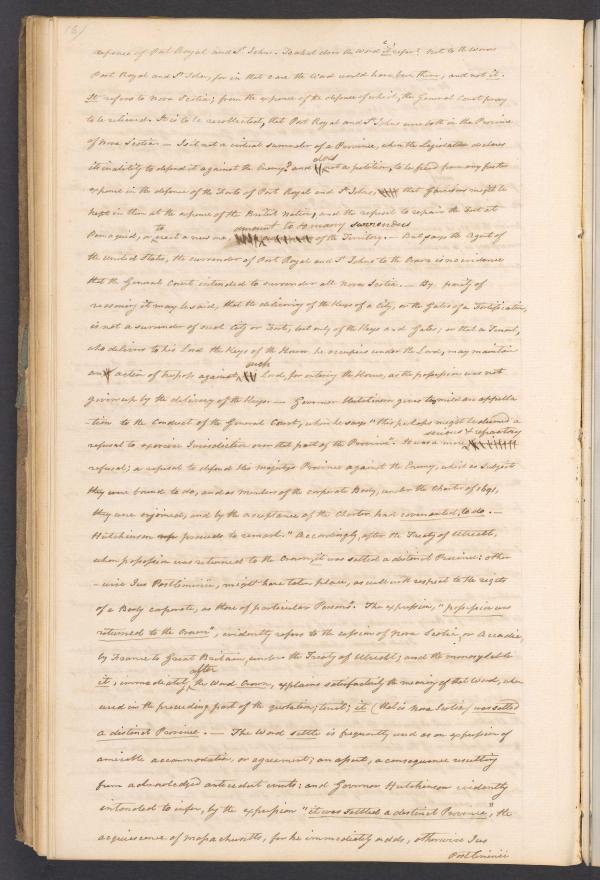 (6)
expence of Port Royal and St Johns. To what does the Word "it" refer? not to the words
Port Royal and St Johns, for in that case the Word would have been them; and not it.
It refers to Nova Scotia; from the expence of the defence of which, the General Court pray
to be relieved. It is to be recollected, that Port Royal and St Johns were both in the Province
of Nova Scotia — Is it not a virtual surrender of a Province, when the Legislature declares
does
its inability to defend it against the Enemy? and not a petition, to be freed from any further
expence in the defence of the Forts of Port Royal and St Johns, that Garrisons might be
kept in them at the expence of the British Nation, and the refusal to repair the Fort at
to amount to so many surrenders
Pemaquid, or erect a new one, of the Territory. — But says the Agent of
the United States, the surrender of Port Royal and St Johns to the Crown is no evidence
that the General Court intended to surrender all Nova Scotia. — By parity of
reasoning it may be said, that the delivering of the Keys of a City, or the Gates of a Fortification,
is not a surrender of such City or Fort, but only of the Keys and Gates; or that a Tenant,
who delivers to his Lord the Keys of the House he occupies under the Lord, may maintain
such
an action of trespass against Lord, for entering the House, as the possession was not
given up by the delivery of the Keys. — Governor Hutchinson gives too mild an appella
-tion to the conduct of the General Court, when he says "this perhaps might be deemed a
refusal to exercise Jurisdiction over that part of the Province". It was a mere
serious & refractory
refusal; a refusal to defend his majestys Province against the Enemy, which as subjects
they were bound to do, and as members of the corporate Body, under the Charter of 1691,
they were enjoined, and by the acceptance of the Charter, had covenanted, to do. —
Hutchinson proceeds to remark. "Accordingly, after the Treaty of Utrecht,
when possession was returned to the Crown, it was settled a distinct Province: other
-wise Jus Postliminii, might have taken place, as well with respect to the rights
of a Body corporate, as those of particular Persons". The expression, "possession was
returned to the Crown", evidently refers to the cession of Nova Scotia, or Accadie,
by France to Great Britain, under the Treaty of Utrecht; and the monosyllable
after
it, immediately the Word Crown, explains satisfactorily the meaning of that Word, when
used in the preceding part of the quotation; it (that is Nova Scotia) was settled
a distinct Province. — The Word settle is frequently used as an expression of
amicable accommodation, or agreement; an assent, a consequence resulting
from acknowledged antecedent events: and Governor Hutchinson evidently
intended to infer, by the expression "it was settled a distinct Province", the
acquiescence of Massachusetts, for he immediately adds, otherwise Jus
Postliminii